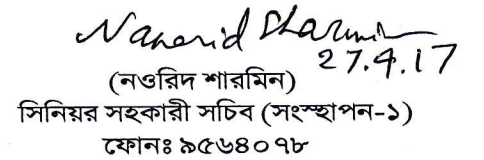 Naoorid Sharmin
27.4.17
(নওরিদ শারমিন)
সিনিয়র সহকারী সচিব (সংস্হাপন-১)
ফোনঃ ৯৫৬৪০৭৮